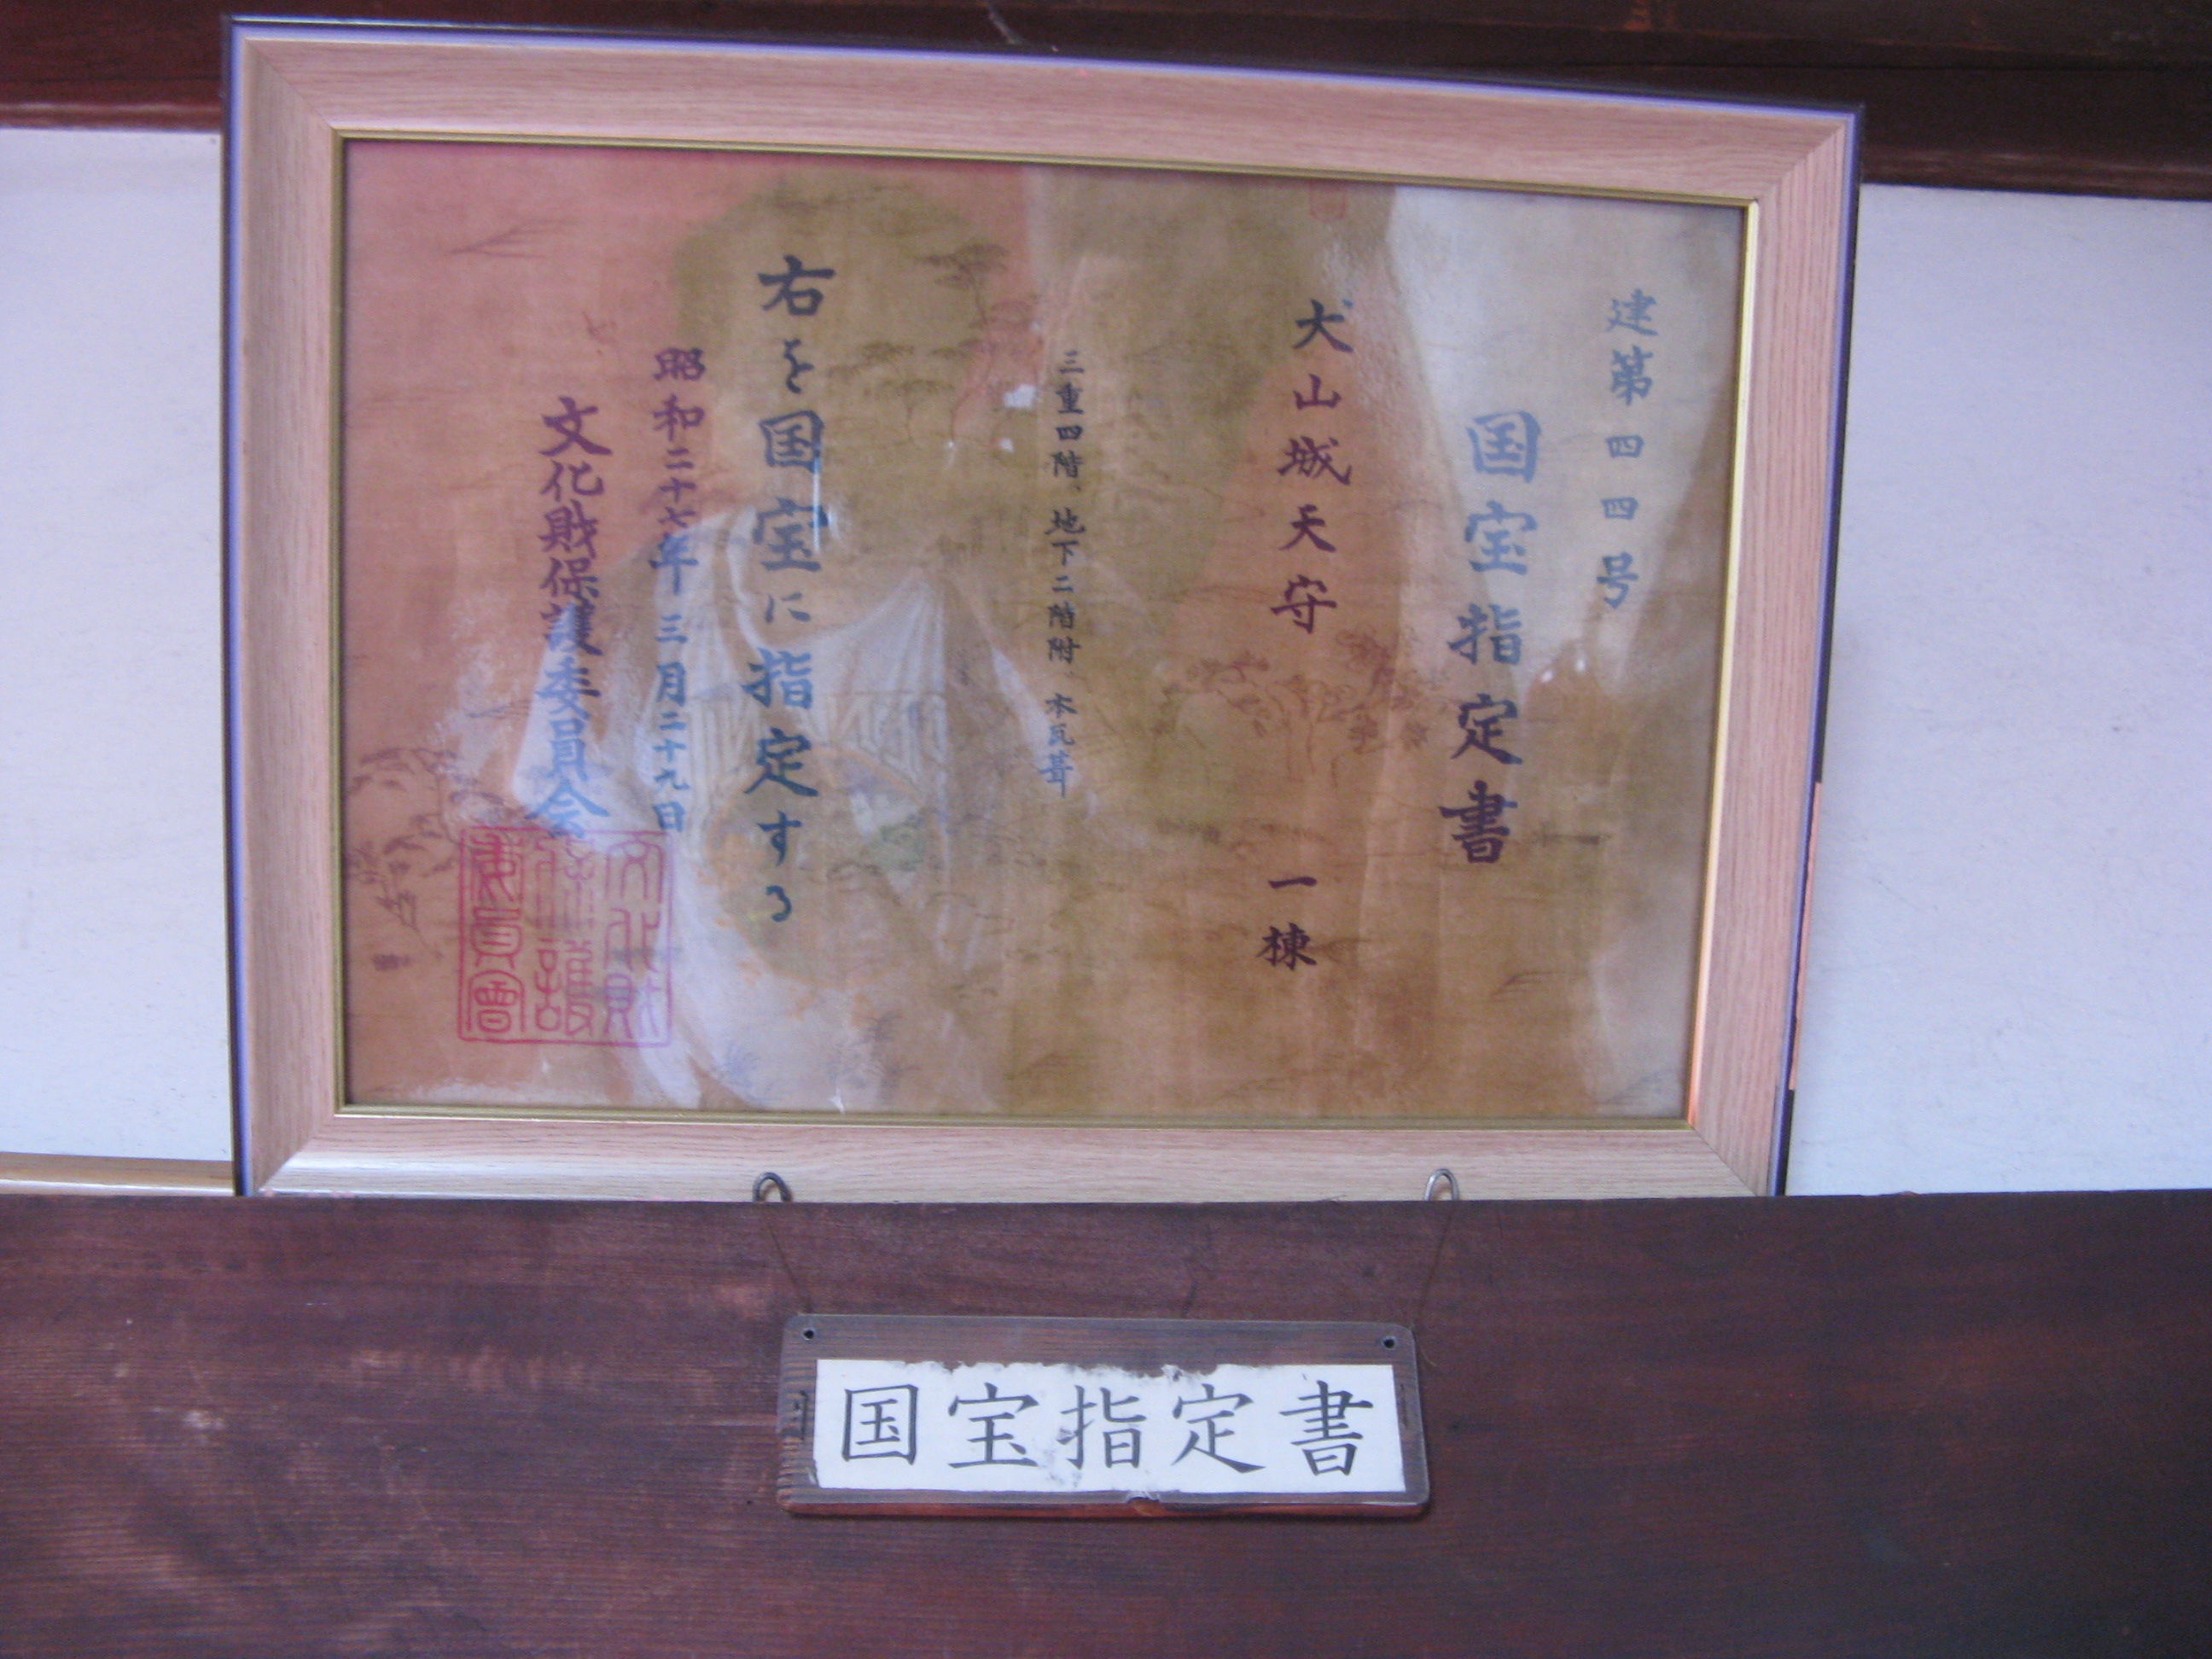 建第四四号
国宝指定書
犬山城天守 一棟
三重四階、地下二階附、本瓦葺
右を国宝に指定する
昭和二十七年三月二十九日
文化財保護委員会
文化財
保護
委員會
国宝指定書